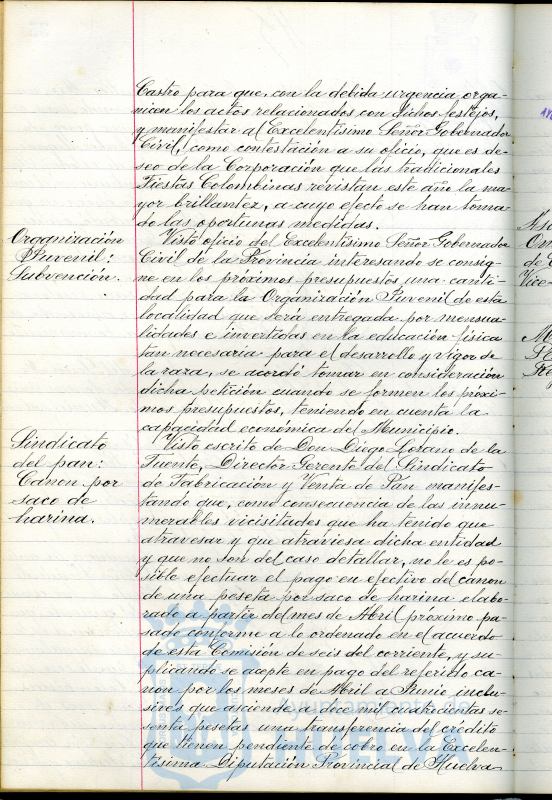 Castro para que, con la debida urgencia orga-
nicen los actos relacionados con dichos festejos,
y manifestar al Excelentísimo Señor Gobernador
Civil, como contestación a su oficio, que es de-
seo de la Corporación que las tradicionales
Fiestas Colombinas revistan este año la ma-
yor brillantez, a cuyo efecto se han toma-
do las oportunas medidas.
Organización
Juvenil:
Subvención.
Visto oficio del Excelentísimo Señor Gobernador
Civil de la Provincia interesando se consig-
ne en los próximos presupuestos una canti-
dad para la Organización Juvenil de esta
localidad que será entregada por mensua-
lidades e invertidas en la educación física
tan necesaria para el desarrollo y vigor de
la raza, se acordó tomar en consideración
dicha petición cuando se formen los próxi-
mos presupuestos, teniendo en cuenta la
capacidad económica del Municipio.
Sindicato
del pan:
Canon por
saco de
harina.
Visto escrito de Don Diego Lozano de la
Fuente, Director Gerente del Sindicato
de Fabricación y Venta de Pan manifes-
tando que, como consecuencia de las innu-
merables vicisitudes que ha tenido que
atravesar y que atraviesa dicha entidad
y que no son del caso detallar, no le es po-
sible efectuar el pago en efectivo del canon
de una peseta por saco de harina elabo-
rado a partir del mes de Abril próximo pa-
sado conforme a lo ordenado en el acuerdo
de esta Comisión de seis del corriente, y su-
plicando se acepte en pago del referido ca-
non por los meses de Abril a Junio inclu-
sives que asciende a doce mil cuatrocientas se-
senta pesetas una transferencia del crédito
que tienen pendiente de cobro en la Excelen-
tísima Diputación Provincial de Huelva